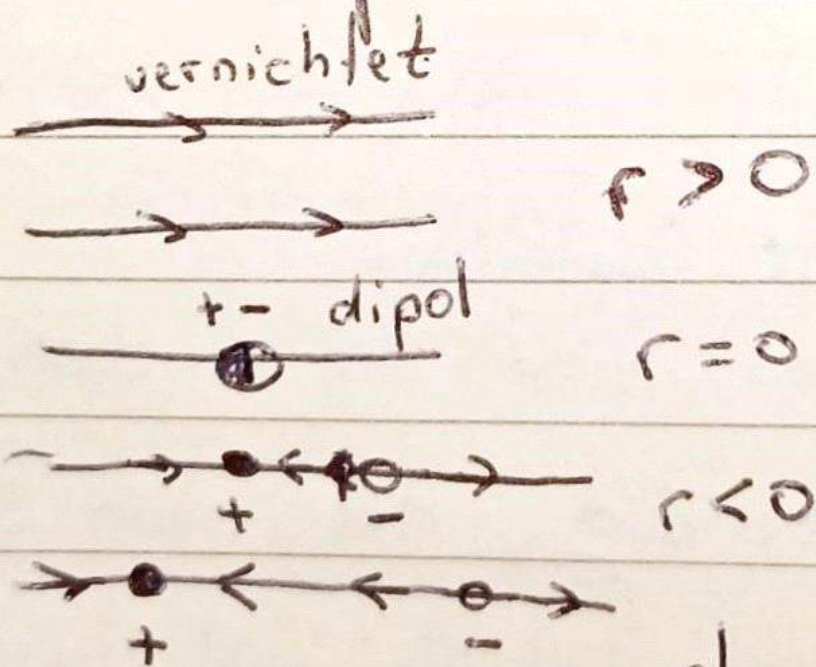 vernichtet
r > 0
+ - dipol
r = 0
+ - r < 0
+ -